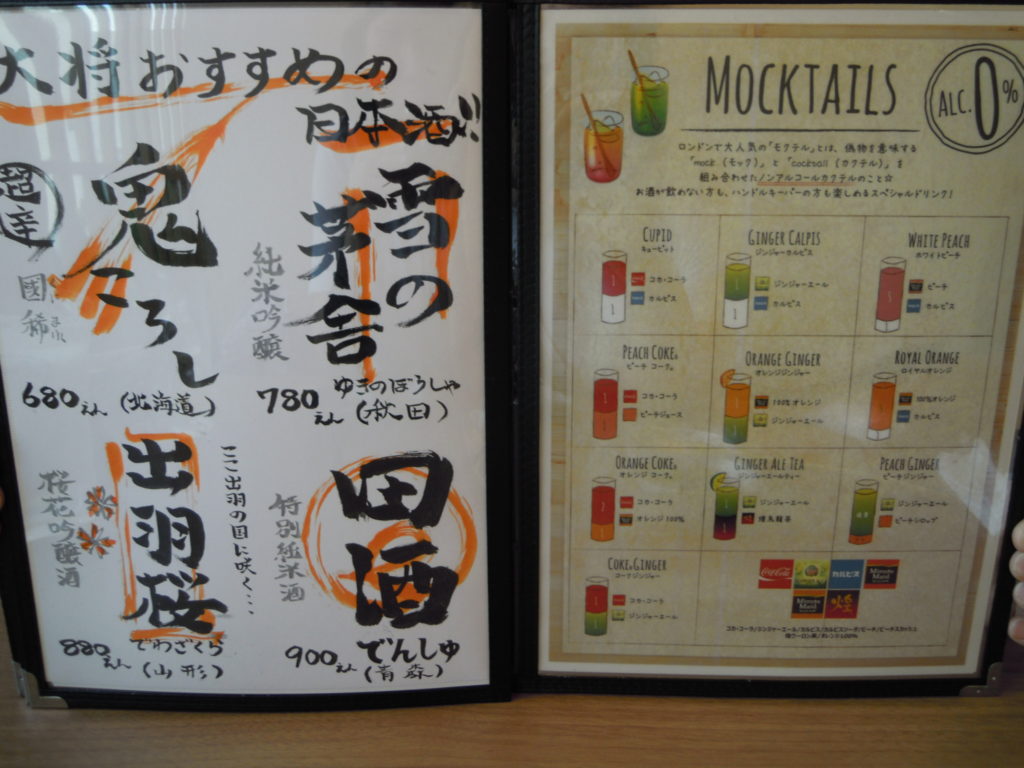 大将おすすめの
日本酒!!
雪の
茅舎
純米吟醸
780えん
ゆきのぼうしゃ
(秋田)
鬼
ころし
超辛
國稀
まれ
680えん (北海道)
田酒
特別純米酒
900えん
でんしゅ
(青森)
出羽桜
ここ出羽の国に咲く…
桜花吟醸酒
880えん
でわざくら
(山形)
MOCKTAILS
ALC. 0%
ロンドンで大人気の「モクテル」とは、偽物を意味する
"mock (モック)" と "cocktail (カクテル)" を
組み合わせたノンアルコールカクテルのこと☆
お酒が飲めない方も、ハンドルキーパーの方も楽しめるスペシャルドリンク!
CUPID
キューピット
コカ・コーラ
カルピス
GINGER CALPIS
ジンジャーカルピス
ジンジャーエール
カルピス
WHITE PEACH
ホワイトピーチ
ピーチ
カルピス
PEACH COKE
ピーチ コーク
コカ・コーラ
ピーチジュース
ORANGE GINGER
オレンジジンジャー
100%オレンジ
ジンジャーエール
ROYAL ORANGE
ロイヤルオレンジ
100%オレンジ
カルピス
ORANGE COKE
オレンジ コーク
コカ・コーラ
オレンジ100%
GINGER ALE TEA
ジンジャーエールティー
ジンジャーエール
PEACH GINGER
ピーチジンジャー
ジンジャーエール
ピーチシロップ
COKE GINGER
コークジンジャー
コカ・コーラ
ジンジャーエール
Coca-Cola
カルピス
Minute Maid
Minute Maid